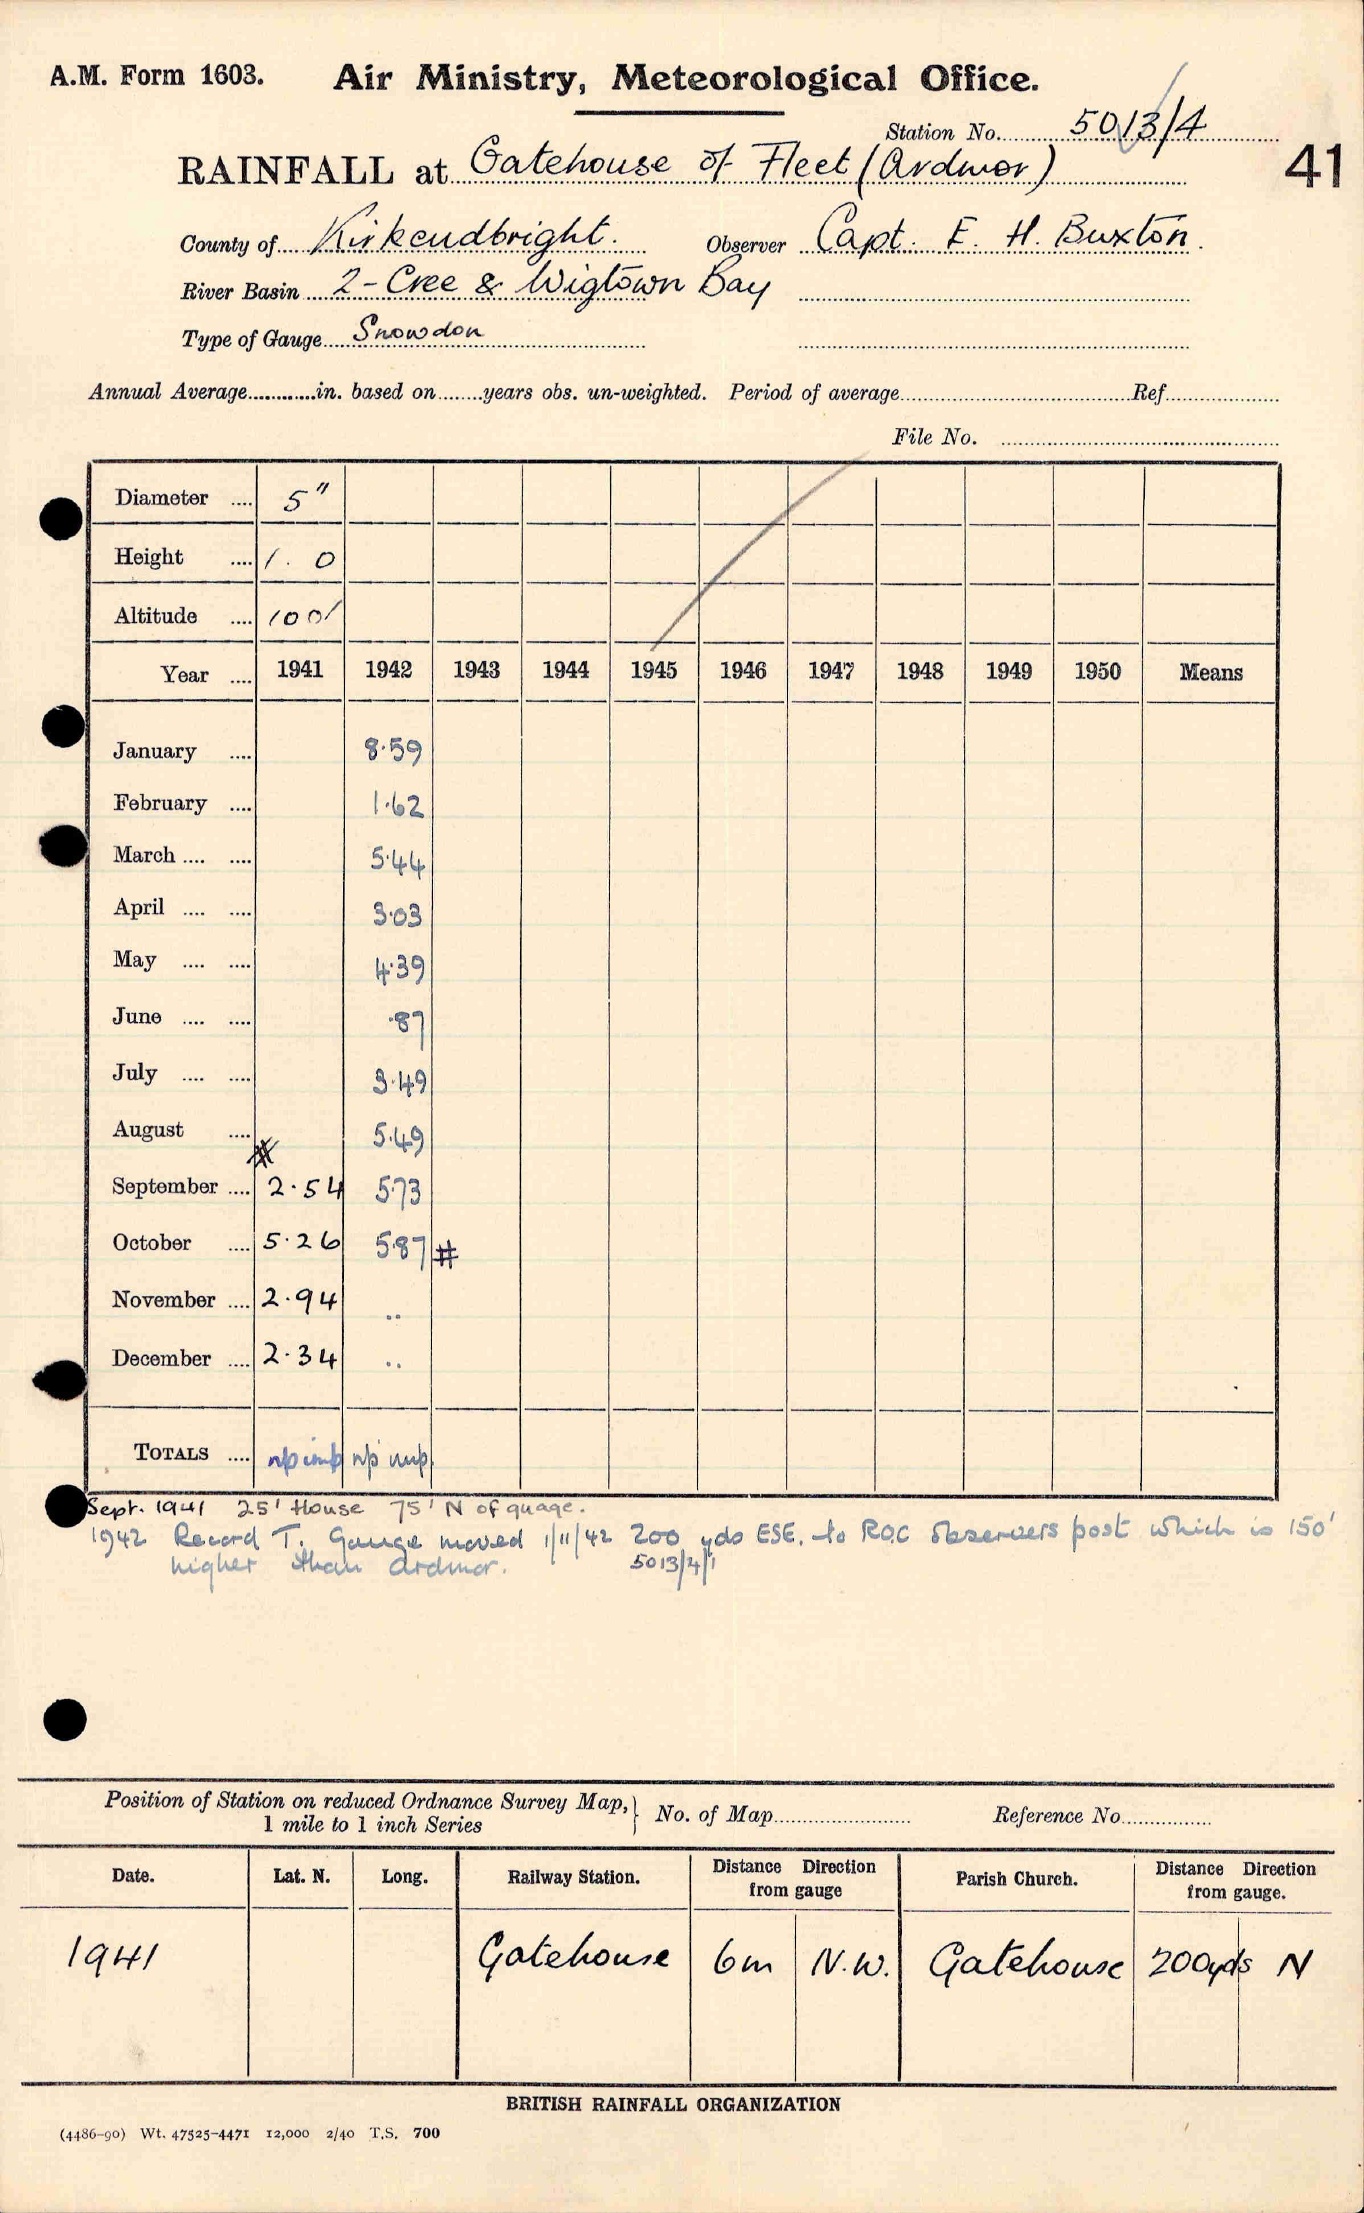 A.M. Form 1603. Air Ministry, Meteorological Office.
Station No. 5013/4
41
RAINFALL at Gatehouse of Fleet (Ardmor)
County of Kirkcudbright. Observer Capt. E. H. Buxton.
River Basin 2 - Cree & Wigtown Bay
Type of Gauge Snowdon
Annual Average............in. based on........years obs. un-weighted. Period of average........ Ref........
File No. ........
Diameter .... 5"
Height .... 1. 0
Altitude .... 100'
Year .... 1941 1942 1943 1944 1945 1946 1947 1948 1949 1950 Means
January .... 8·59
February .... 1·62
March .... .... 5·44
April .... .... 3·03
May .... .... 4·39
June .... .... ·87
July .... .... 3·49
August .... 5·49
#
September .... 2·54 5·73
October .... 5·26 5·87 #
November .... 2·94 ..
December .... 2·34 ..
TOTALS .... np imp np imp.
Sept. 1941 25' House 75' N of guage.
1942 Record T. Gauge moved 1/11/42 200 yds ESE. to R.O.C observers post which is 150'
higher than Ardmor. 5013/4/1
Position of Station on reduced Ordnance Survey Map, } No. of Map........ Reference No........
1 mile to 1 inch Series
Date. Lat. N. Long. Railway Station. Distance Direction from gauge Parish Church. Distance Direction from gauge.
1941 Gatehouse 6m N.W. Gatehouse 200yds N
BRITISH RAINFALL ORGANIZATION
(4486-90) Wt. 47525-4471 12,000 2/40 T.S. 700